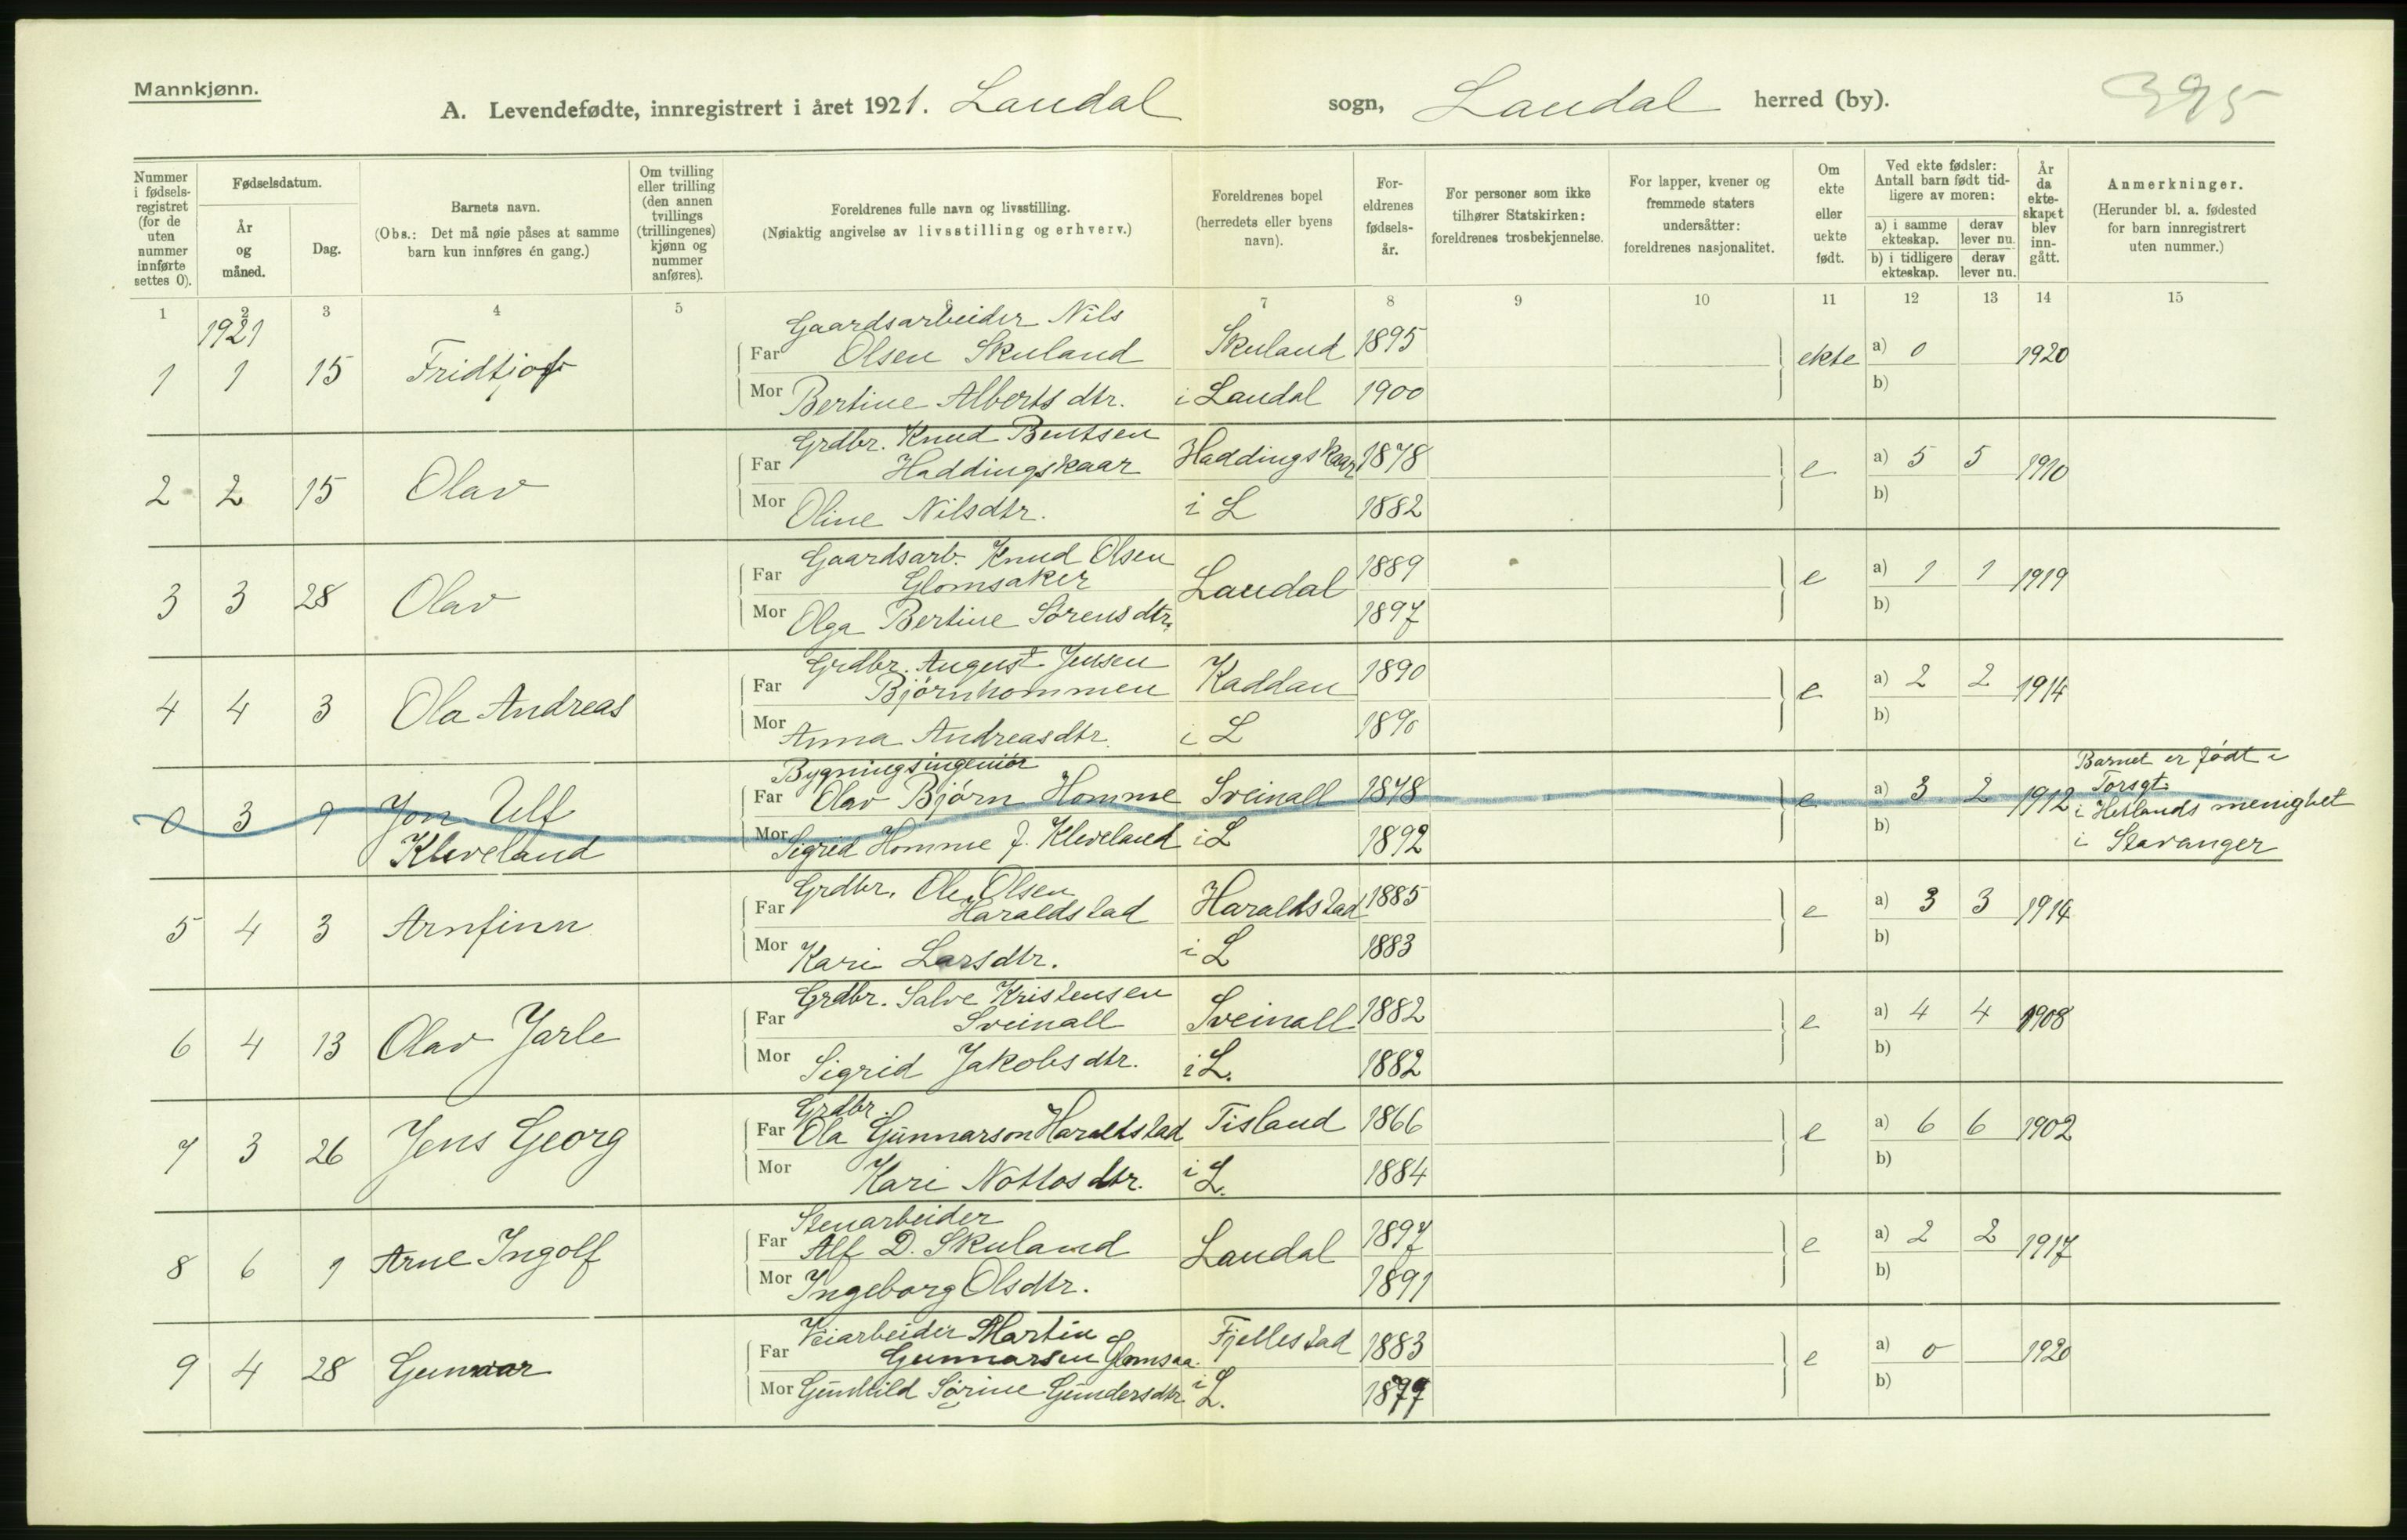 Mannkjønn.
A. Levendefødte, innregistrert i året 1921. Laudal sogn, Laudal herred (by). 395
Nummer i fødselsregistret (for de uten nummer innførte settes 0).
Fødselsdatum.
År og måned.
Dag.
Barnets navn.
(Obs.: Det må nøie påses at samme barn kun innføres én gang.)
Om tvilling eller trilling (den annen tvillings (trillingenes) kjønn og nummer anføres).
Foreldrenes fulle navn og livsstilling.
(Nøiaktig angivelse av livsstilling og erhverv.)
Foreldrenes bopel (herredets eller byens navn).
Foreldrenes fødselsår.
For personer som ikke tilhører Statskirken: foreldrenes trosbekjennelse.
For lapper, kvener og fremmede staters undersåtter: foreldrenes nasjonalitet.
Om ekte eller uekte født.
Ved ekte fødsler: Antall barn født tidligere av moren:
a) i samme ekteskap. derav lever nu.
b) i tidligere ekteskap. derav lever nu.
År da ekteskapet blev inngått.
Anmerkninger.
(Herunder bl. a. fødested for barn innregistrert uten nummer.)
1 2 3 4 5 6 7 8 9 10 11 12 13 14 15
1921
Gaardsarbeider Nils
1 1 15 Fridtjof Far Olsen Skuland Skuland 1895 ekte a) 0 1920
Mor Bertine Alberts dtr. i Laudal 1900 b)
Grdbr. Knud Bentsen
2 2 15 Olav Far Haddingskaar Haddingskaar 1878 e a) 5 5 1910
Mor Oline Nilsdtr. i L 1882 b)
Gaardsarb. Knud Olsen
3 3 28 Olav Far Glomsaker Laudal 1889 e a) 1 1 1919
Mor Olga Bertine Sørensdtr. 1897 b)
Grdbr. August Jensen
4 4 3 Ola Andreas Far Bjørnhommen Kaddan 1890 e a) 2 2 1914
Mor Anna Andreasdtr. i L 1890 b)
Bygningsingeniør
0 3 9 Jon Ulf Far Olav Bjørn Homme Sveinall 1878 e a) 3 2 1912
Kleveland Mor Sigrid Homme f. Kleveland i L 1892 b)
Barnet er født i
Torsgt.
i Hetlands menighet
i Stavanger
Grdbr. Ole Olsen
5 4 3 Arnfinn Far Haraldstad Haraldstad 1885 e a) 3 3 1914
Mor Kari Larsdtr. i L 1883 b)
Grdbr. Salve Kristensen
6 4 13 Olav Jarle Far Sveinall Sveinall 1882 e a) 4 4 1908
Mor Sigrid Jakobsdtr. i L. 1882 b)
Grdbr.
7 3 26 Jens Georg Far Ola Gunnarson Haraldstad Tisland 1866 e a) 6 6 1902
Mor Kari Nottosdtr. i L. 1884 b)
Stenarbeider
8 6 1 Arne Ingolf Far Alf D. Skuland Laudal 1897 e a) 2 2 1917
Mor Ingeborg Olsdtr. 1891 b)
Veiarbeider Martin
9 4 28 Gunnar Far Gunnarsen Glomsaa. Fjellestad 1883 e a) 0 1920
Mor Gunhild Sørine Gundersdtr. i L. 1877 b)